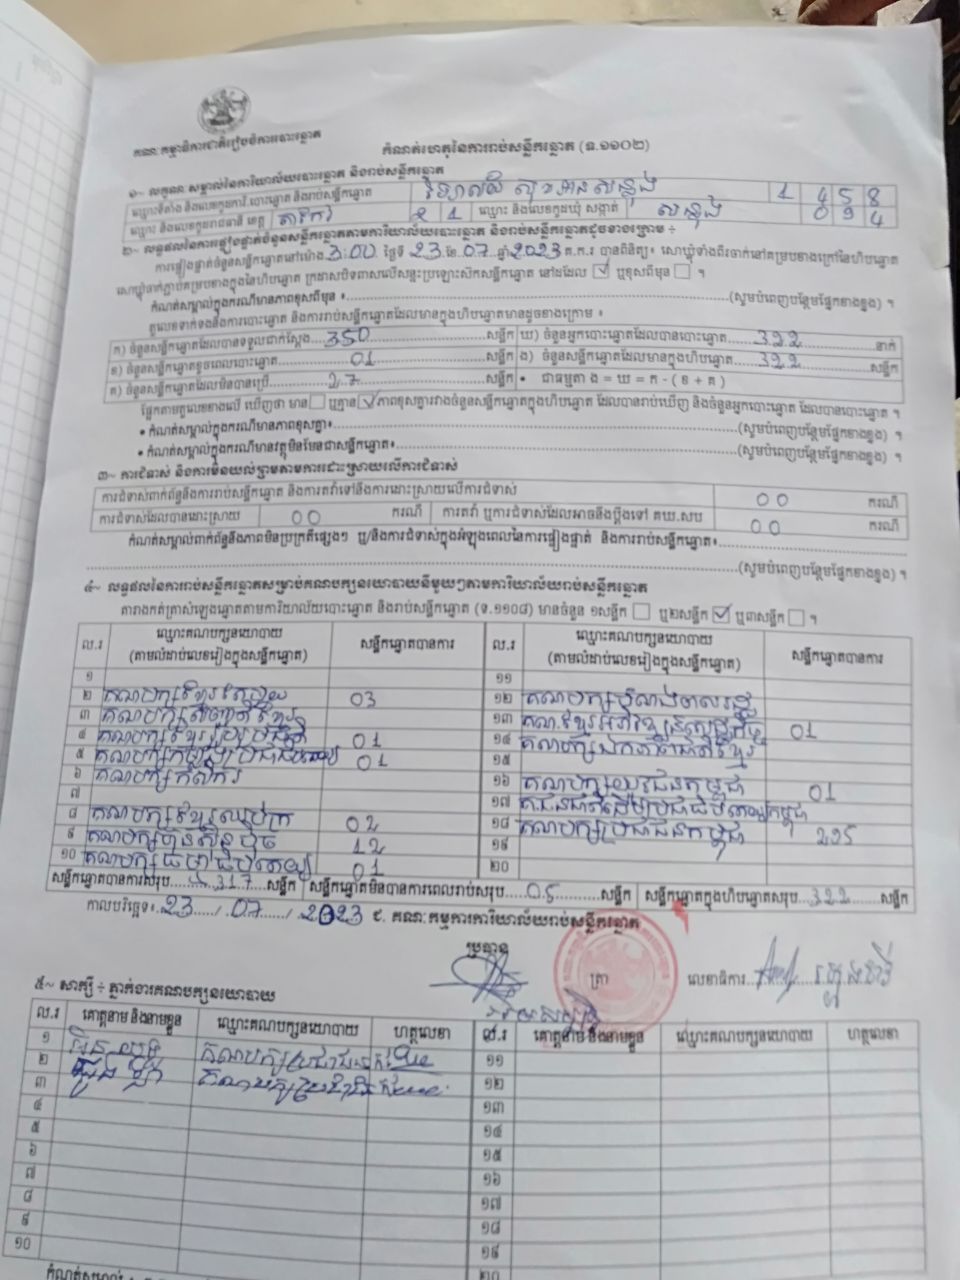 គណៈកម្មាធិការជាតិរៀបចំការបោះឆ្នោត
កំណត់ហេតុនៃការរាប់សន្លឹកឆ្នោត (ទ.១១០២)
១~ លក្ខណៈសម្គាល់នៃការិយាល័យបោះឆ្នោត និងរាប់សន្លឹកឆ្នោត
ឈ្មោះទីតាំង និងលេខកូដការិ.បោះឆ្នោត និងរាប់សន្លឹកឆ្នោត វិទ្យាល័យ សន្លុង 1 4 5 8
ឈ្មោះ និងលេខកូដរាជធានី ខេត្ត តាកែវ 2 1 ឈ្មោះ និងលេខកូដឃុំ សង្កាត់ សន្លុង 0 9 4
២~ លទ្ធផលនៃការផ្ទៀងផ្ទាត់ចំនួនសន្លឹកឆ្នោតតាមការិយាល័យបោះឆ្នោត និងរាប់សន្លឹកឆ្នោតដូចខាងក្រោម ÷
ការផ្ទៀងផ្ទាត់ចំនួនសន្លឹកឆ្នោតនៅម៉ោង 3:00 ថ្ងៃទី 23 ខែ 07 ឆ្នាំ 2023 គ.ក.រ បានពិនិត្យ៖ សោឃ្លុំទាំងពីរចាក់នៅគម្របខាងក្រៅនៃហិបឆ្នោត
សោឃ្លុំចាក់ភ្ជាប់គម្របខាងក្នុងនៃហិបឆ្នោត ក្រដាសបិទពាសលើសន្ទះប្រឡោះស៊កសន្លឹកឆ្នោត នៅដដែល ☑ ឬខុសពីមុន ☐ ។
កំណត់សម្គាល់ក្នុងករណីមានភាពខុសពីមុន ៖ (សូមបំពេញបន្ថែមផ្នែកខាងខ្នង) ។
តួលេខទាក់ទងនឹងការបោះឆ្នោត និងការរាប់សន្លឹកឆ្នោតដែលមានក្នុងហិបឆ្នោតមានដូចខាងក្រោម ៖
ក) ចំនួនសន្លឹកឆ្នោតដែលបានទទួលជាក់ស្តែង 350 សន្លឹក ឃ) ចំនួនអ្នកបោះឆ្នោតដែលបានបោះឆ្នោត 322 នាក់
ខ) ចំនួនសន្លឹកឆ្នោតខូចពេលបោះឆ្នោត 01 សន្លឹក ង) ចំនួនសន្លឹកឆ្នោតដែលមានក្នុងហិបឆ្នោត 322 សន្លឹក
គ) ចំនួនសន្លឹកឆ្នោតដែលមិនបានប្រើ 27 សន្លឹក • ជាធម្មតា ង = ឃ = ក - ( ខ + គ )
ផ្អែកតាមតួលេខខាងលើ ឃើញថា មាន ☐ ឬគ្មាន ☑ ភាពខុសគ្នារវាងចំនួនសន្លឹកឆ្នោតក្នុងហិបឆ្នោត ដែលបានរាប់ឃើញ និងចំនួនអ្នកបោះឆ្នោត ដែលបានបោះឆ្នោត ។
• កំណត់សម្គាល់ក្នុងករណីមានភាពខុសគ្នា៖ (សូមបំពេញបន្ថែមផ្នែកខាងខ្នង) ។
• កំណត់សម្គាល់ក្នុងករណីមានវត្ថុមិនមែនជាសន្លឹកឆ្នោត៖ (សូមបំពេញបន្ថែមផ្នែកខាងខ្នង) ។
៣~ ការជំទាស់ និងការមិនយល់ព្រមតាមការដោះស្រាយលើការជំទាស់
ការជំទាស់ពាក់ព័ន្ធនឹងការរាប់សន្លឹកឆ្នោត និងការតវ៉ាទៅនឹងការដោះស្រាយលើការជំទាស់ 00 ករណី
ការជំទាស់ដែលបានដោះស្រាយ 00 ករណី ការតវ៉ា ឬការជំទាស់ដែលអាចនឹងប្តឹងទៅ គឃ.សប 00 ករណី
កំណត់សម្គាល់ពាក់ព័ន្ធនឹងភាពមិនប្រក្រតីផ្សេងៗ ឬ/និងការជំទាស់ក្នុងអំឡុងពេលនៃការផ្ទៀងផ្ទាត់ និងការរាប់សន្លឹកឆ្នោត៖
(សូមបំពេញបន្ថែមផ្នែកខាងខ្នង) ។
៤~ លទ្ធផលនៃការរាប់សន្លឹកឆ្នោតសម្រាប់គណបក្សនយោបាយនីមួយៗតាមការិយាល័យរាប់សន្លឹកឆ្នោត
តារាងកត់ត្រាសំឡេងឆ្នោតតាមការិយាល័យបោះឆ្នោត និងរាប់សន្លឹកឆ្នោត (ទ.១១០៨) មានចំនួន ១សន្លឹក ☐ ឬ២សន្លឹក ☑ ឬ៣សន្លឹក ☐ ។
ល.រ ឈ្មោះគណបក្សនយោបាយ (តាមលំដាប់លេខរៀងក្នុងសន្លឹកឆ្នោត) សន្លឹកឆ្នោតបានការ ល.រ ឈ្មោះគណបក្សនយោបាយ (តាមលំដាប់លេខរៀងក្នុងសន្លឹកឆ្នោត) សន្លឹកឆ្នោតបានការ
១ ១១
២ 03 ១២
៣ គណបក្សសញ្ជាតិខ្មែរ ១៣ 01
៤ គណបក្សខ្មែររួបរួមជាតិ 01 ១៤
៥ គណបក្សកម្លាំងប្រជាធិបតេយ្យ 01 ១៥
៦ គណបក្សកសិករ ១៦ គណបក្សយុវជនកម្ពុជា 01
៧ ១៧
៨ គណបក្សខ្មែរឈប់ក្រ 02 ១៨ គណបក្សប្រជាជនកម្ពុជា 295
៩ គណបក្សហ៊្វុនស៊ិនប៉ិច 12 ១៩
១០ គណបក្សធម្មាធិបតេយ្យ 01 ២០
សន្លឹកឆ្នោតបានការសរុប 317 សន្លឹក សន្លឹកឆ្នោតមិនបានការពេលរាប់សរុប 05 សន្លឹក សន្លឹកឆ្នោតក្នុងហិបឆ្នោតសរុប 322 សន្លឹក
កាលបរិច្ឆេទ៖ 23 / 07 / 2023 ៩. គណៈកម្មការការិយាល័យរាប់សន្លឹកឆ្នោត
ប្រធាន ត្រា លេខាធិការ
៥~ សាក្សី ÷ ភ្នាក់ងារគណបក្សនយោបាយ
ល.រ គោត្តនាម និងនាមខ្លួន ឈ្មោះគណបក្សនយោបាយ ហត្ថលេខា ល.រ គោត្តនាម និងនាមខ្លួន ឈ្មោះគណបក្សនយោបាយ ហត្ថលេខា
១ គណបក្សប្រជាជន ១១
២ គណបក្សប្រជាជន ១២
៣ ១៣
៤ ១៤
៥ ១៥
៦ ១៦
៧ ១៧
៨ ១៨
៩ ១៩
១០ ២០